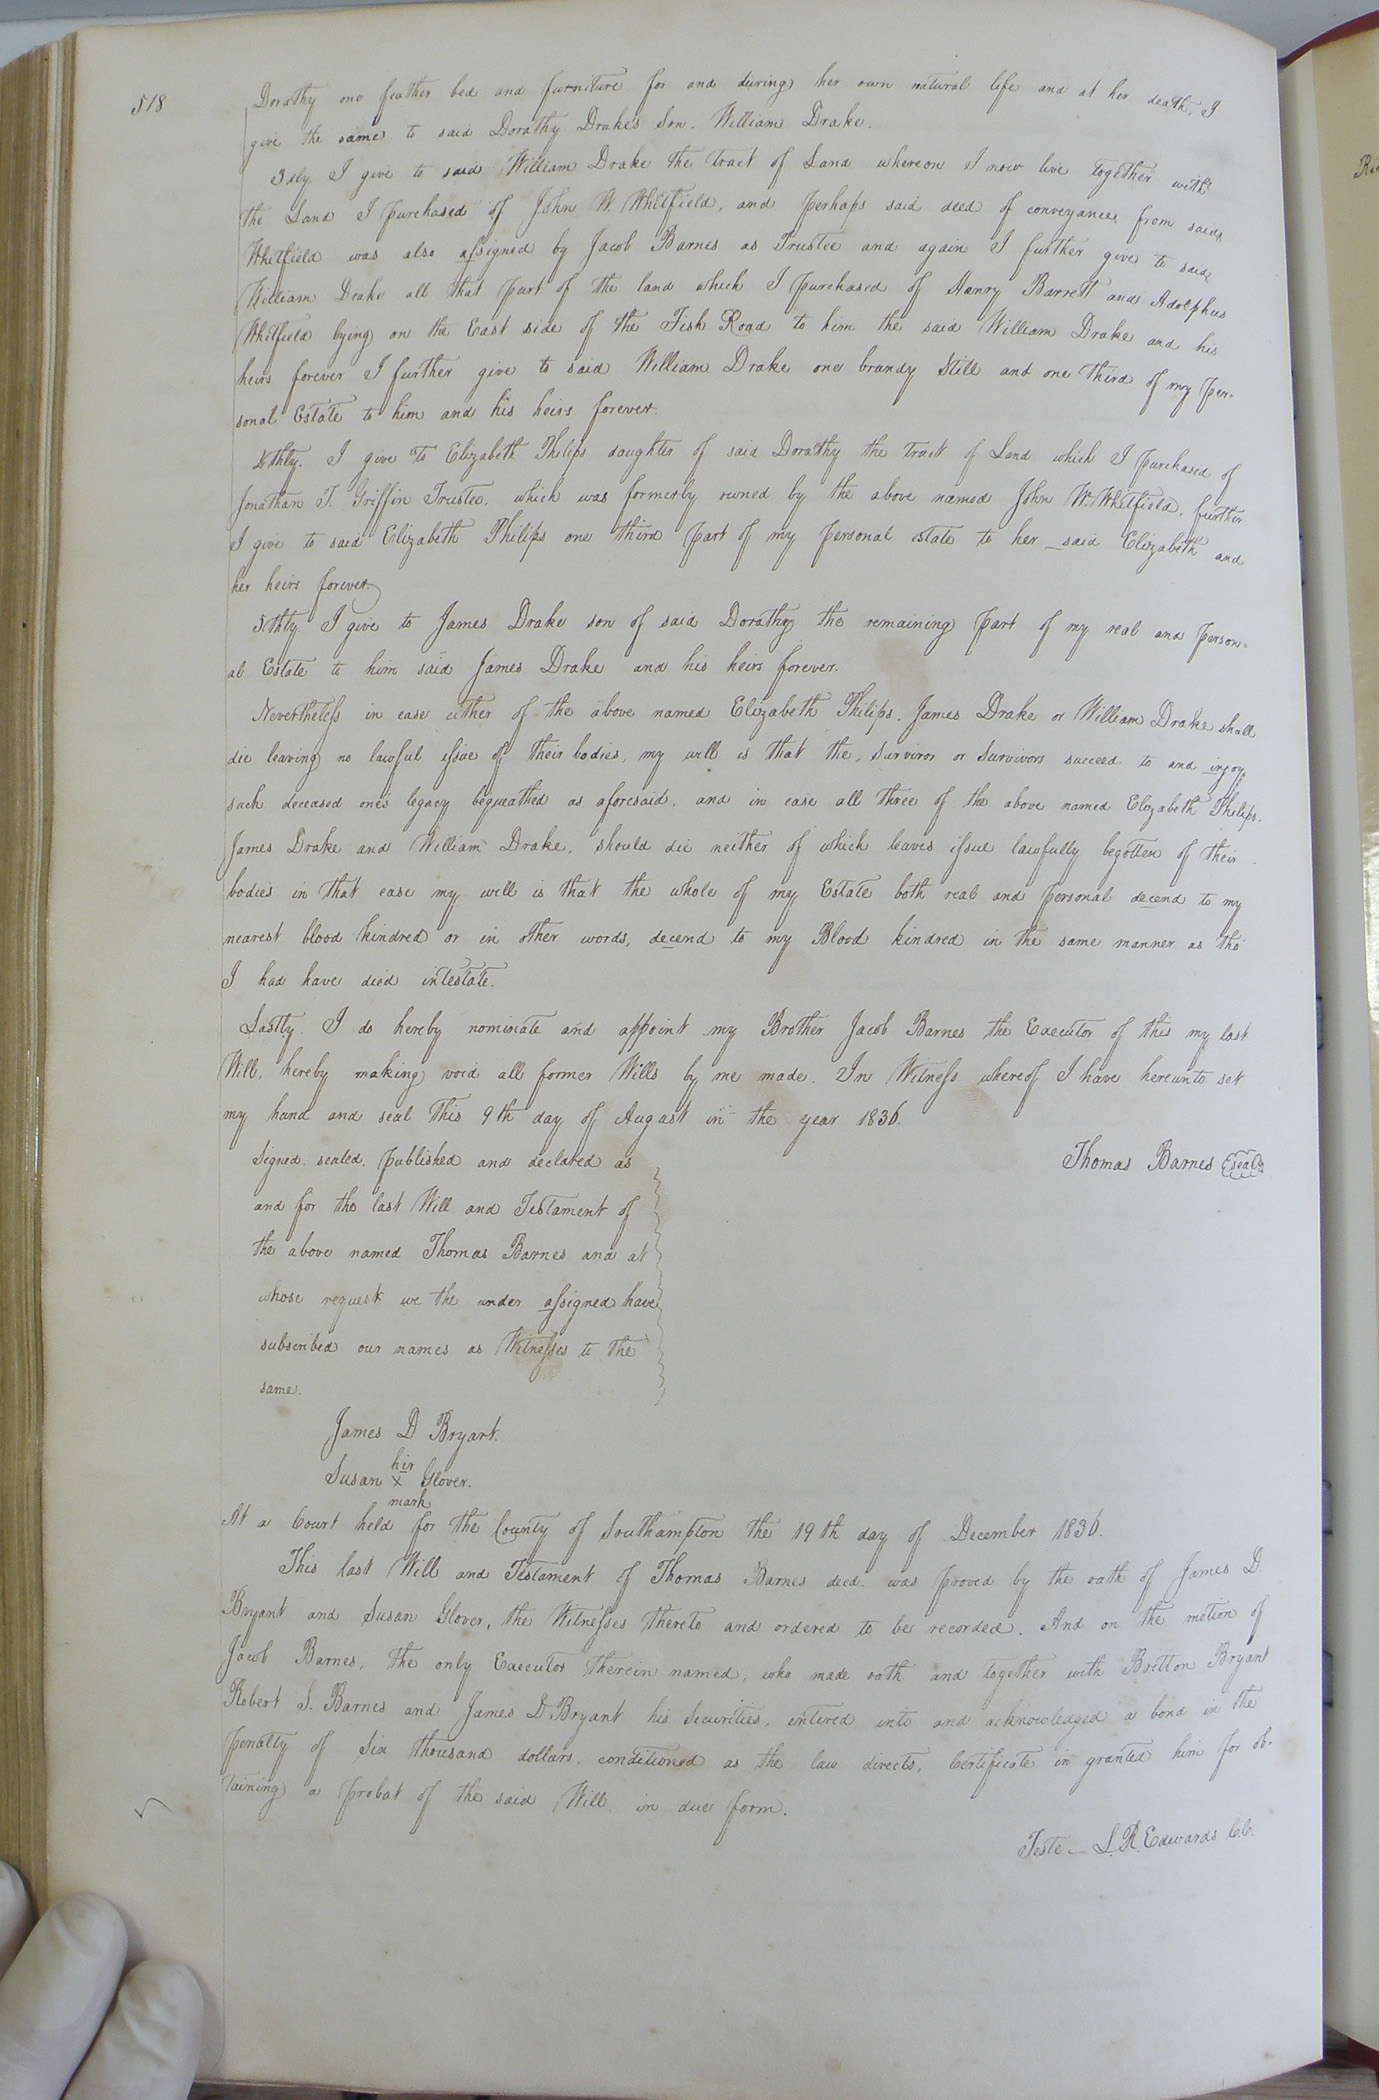 518
Dorathy one feather bed and furniture for and during her own natural life and at her death, I
give the same to said Dorathy Drakes Son. William Drake.
3dly. I give to said William Drake the tract of Land whereon I now live together with
the Land I purchased of John W. Whitfield, and perhaps said deed of conveyance from said
Whitfield was also assigned by Jacob Barnes as Trustee and again I further give to said
William Drake all that part of the land which I purchased of Henry Barrett and Adolphus
Whitfield lying on the East side of the Fish Road to him the said William Drake and his
heirs forever I further give to said William Drake one brandy Still and one third of my per-
sonal Estate to him and his heirs forever.
4thly. I give to Elizabeth Philips daughter of said Dorathy the tract of Land which I purchased of
Jonathan T. Griffin Trustee, which was formerly owned by the above named John W. Whitfield, further
I give to said Elizabeth Philips one third part of my personal estate to her said Elizabeth and
her heirs forever.
5thly I give to James Drake son of said Dorathy the remaining part of my real and person-
al Estate to him said James Drake and his heirs forever.
Nevertheless in case either of the above named Elizabeth Philips, James Drake or William Drake shall
die leaving no lawful issue of their bodies, my will is that the, survivor or survivors succeed to and injoy
such deceased one's legacy bequeathed as aforesaid, and in case all three of the above named Elizabeth Philips.
James Drake and William Drake, should die neither of which leaves issue lawfully begotten of their
bodies in that case my will is that the whole of my Estate both real and personal decend to my
nearest blood kindred or in other words, decend to my Blood kindred in the same manner as tho
I had have died intestate.
Lastly. I do hereby nominate and appoint my Brother Jacob Barnes the Executor of this my last
Will, hereby making void all former Wills by me made. In Witness whereof I have hereunto set
my hand and seal this 9th day of August in the year 1836.
Thomas Barnes seal
Signed, sealed, published and declared as
and for the last Will and Testament of
the above named Thomas Barnes and at
whose request we the under assigned have
subscribed our names as Witnesses to the
same.
James D Bryant.
her
Susan x Glover.
mark
At a Court held for the County of Southampton the 19th day of December 1836.
This last Will and Testament of Thomas Barnes decd. was proved by the oath of James D.
Bryant and Susan Glover, the Witnesses thereto and ordered to be recorded. And on the motion of
Jacob Barnes, the only Executor therein named, who made oath and together with Britton Bryant
Robert S. Barnes and James D Bryant his Securities, entered into and acknowledged a bond in the
penalty of Six thousand dollars, conditioned as the law directs, Certificate in granted him for ob-
taining a probat of the said Will in due form.
Teste — L. R. Edwards C.C.